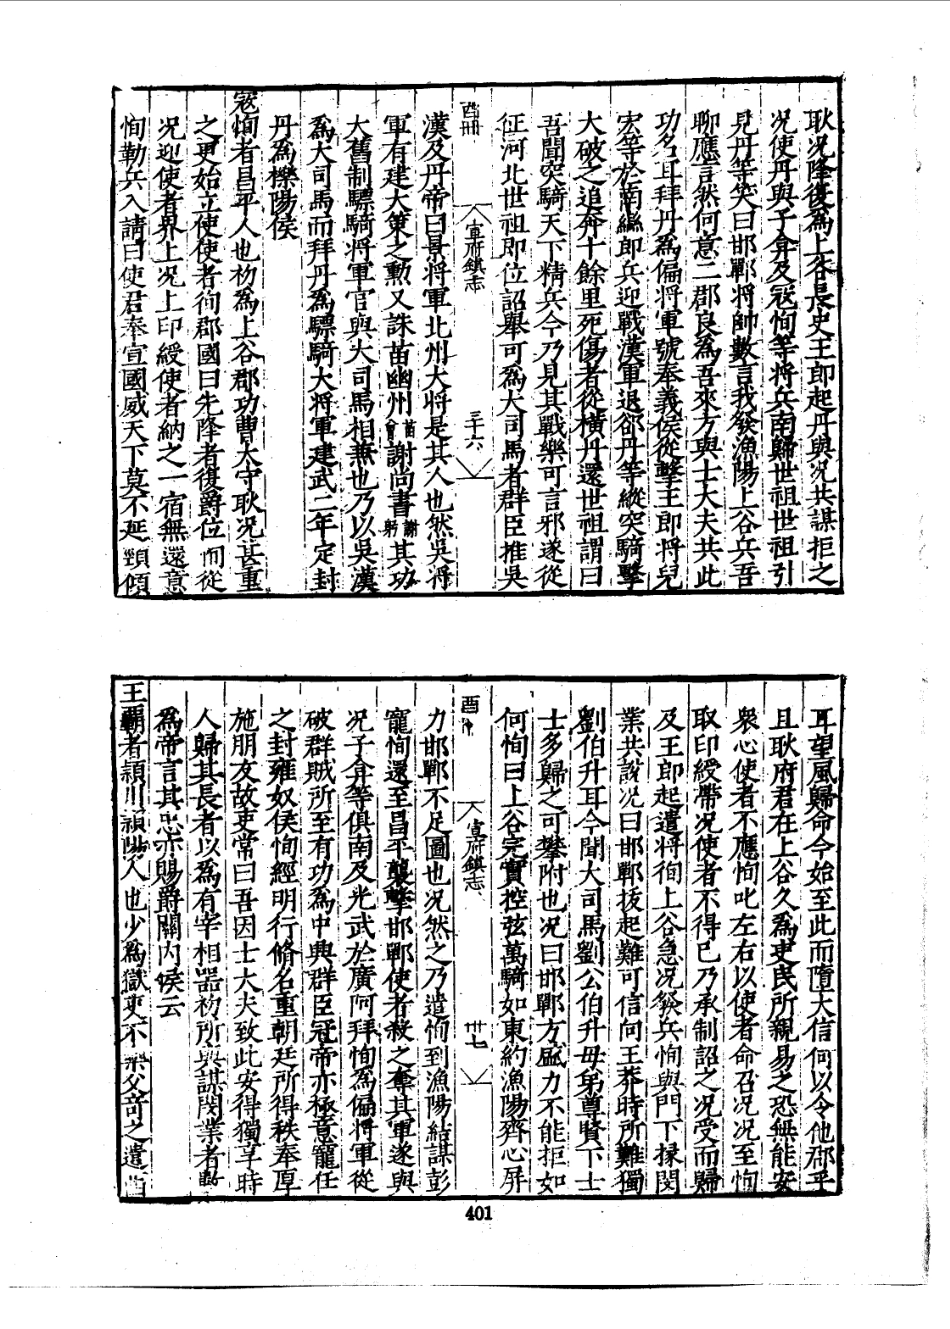 耿况降復爲上谷長史王郎起丹與况共謀拒之
况使丹與子弇及寇恂等將兵南歸世祖世祖引
見丹等笑曰邯鄲將帥數言我發漁陽上谷兵吾
聊應言然何意二郡良爲吾來方與士大夫共此
功名耳拜丹爲偏將軍號奉義侯從擊王郎將兒
宏等於南䜌郎兵迎戰漢軍退郤丹等縱突騎擊
大破之追奔十餘里死傷者從橫丹還世祖謂曰
吾聞突騎天下精兵今乃見其戰樂可言邪遂從
征河北世祖即位詔舉可爲大司馬者群臣推吳
宣府鎮志
三十六
漢及丹帝曰景將軍北州大將是其人也然吳將
軍有建大策之勳又誅苗幽州苗曾謝尚書謝躬其功
大舊制驃騎將軍官與大司馬相兼也乃以吳漢
爲大司馬而拜丹爲驃騎大將軍建武二年定封
丹爲櫟陽侯
寇恂者昌平人也初爲上谷郡功曹太守耿况甚重
之更始立使使者徇郡國曰先降者復爵位恂從
况迎使者界上况上印綬使者納之一宿無還意
恂勒兵入請曰使君奉宣國威天下莫不延頸傾
耳望風歸命今始至此而墮大信何以令他郡乎
且耿府君在上谷久爲吏民所親易之恐無能安
衆心使者不應恂叱左右以使者命召况况至恂
取印綬帶况使者不得已乃承制詔之况受而歸
及王郎起遣將徇上谷急况發兵恂與門下掾閔
業共說况曰邯鄲拔起難可信向王莽時所難獨
劉伯升耳今聞大司馬劉公伯升母弟尊賢下士
士多歸之可攀附也况曰邯鄲方盛力不能拒如
何恂曰上谷完實控弦萬騎如東約漁陽齊心屏
宣府鎮志
卅七
力邯鄲不足圖也况然之乃遣恂到漁陽結謀彭
寵恂還至昌平襲擊邯鄲使者殺之奪其軍遂與
况子弇等俱南及光武於廣阿拜恂爲偏將軍從
破群賊所至有功爲中興群臣冠帝亦極意寵任
之封雍奴侯恂經明行脩名重朝廷所得秩奉厚
施朋友故吏常曰吾因士大夫致此安得獨享時
人歸其長者以爲有宰相器初所與謀閔業者數
爲帝言其忠亦賜爵關內侯云
王霸者潁川潁陽人也少爲獄吏不樂父奇之遣西
401